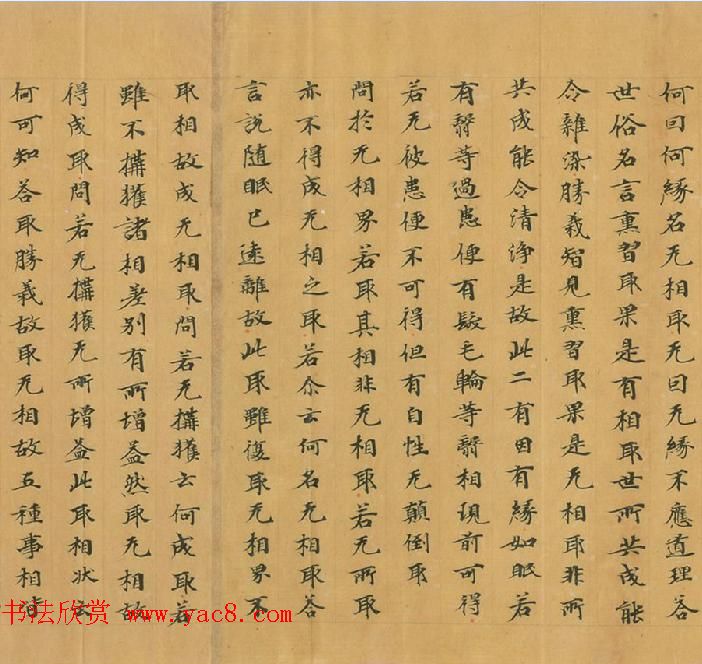 何因何緣名无相取无因无緣不應道理荅
世俗名言熏習取果是有相取世所共成能
令雜染勝義智見熏習取果是无相取非所
共成能令清淨是故此二有因有緣如眼若
有翳等過患便有髮毛輪等翳相現前可得
若无彼患便不可得但有自性无顛倒取
問於无相界若取其相非无相取若无所取
亦不得成无相之取若尒云何名无相取荅
言說随眠已遠離故此取雖復取无相界不
取相故成无相取問若无搆獲云何成取荅
雖不搆獲諸相差別有所增益然取无相故
得成取問若无搆獲无所增益此取相狀云
何可知荅取勝義故取无相故五種事相皆
书法欣赏 www.yac8.com